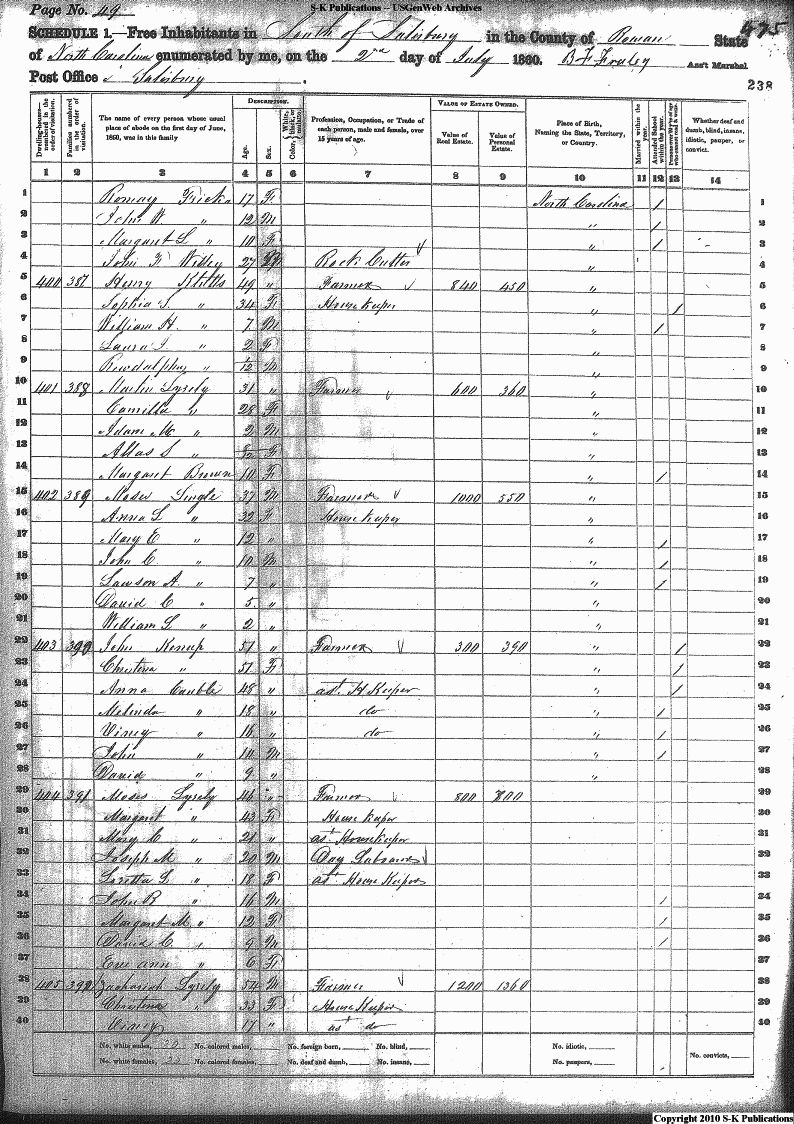 S-K Publications -- USGenWeb Archives
Page No. 49
475
SCHEDULE 1.—Free Inhabitants in South of Salisbury in the County of Rowan State
of North Carolina enumerated by me, on the 2nd day of July 1860. B F Fraley Ass't Marshal
Post Office Salisbury
238
Dwelling-house—numbered in the order of visitation. Families numbered in the order of visitation. The name of every person whose usual place of abode on the first day of June, 1860, was in this family DESCRIPTION. Age. Sex. Color, White, black, or mulatto. Profession, Occupation, or Trade of each person, male and female, over 15 years of age. VALUE OF ESTATE OWNED. Value of Real Estate. Value of Personal Estate. Place of Birth, Naming the State, Territory, or Country. Married within the year. Attended School within the year. Whether deaf and dumb, blind, insane, idiotic, pauper, or convict.
1 2 3 4 5 6 7 8 9 10 11 12 13 14
1 17 F North Carolina / 1
2 John W " 12 M " / 2
3 Margaret L " 10 F " / 3
4 John F 27 Rock Cutter " 4
5 400 387 Henry 49 " Farmer 840 450 " 5
6 Sophia " 34 F House Keeper " / 6
7 William H. " 7 M " / 7
8 Laura " 2 F " 8
9 " /12 M " 9
10 401 388 Martin Lyerly 31 " Farmer 600 360 " 10
11 Camilla " 28 F " 11
12 Adam Mc " 2 M " 12
13 S " /12 F " 13
14 Margaret Brown 10 F " / 14
15 402 389 Moses Lingle 37 M Farmer 1000 550 " 15
16 Anna L " 32 F House Keeper " 16
17 Mary C " 12 " " / 17
18 John C. " 10 M " / 18
19 Lawson A. " 7 " " / 19
20 David C " 5 " " 20
21 William L " 2 " " 21
22 403 390 John 51 " Farmer 300 390 " / 22
23 Christena " 51 F " / 23
24 Anna Cauble 48 " ast. H Keeper " / 24
25 Melinda " 18 " do " / 25
26 Viney " 16 " do " / 26
27 John " 10 M " / 27
28 David " 9 " " 28
29 404 391 Moses Lyerly 46 " Farmer 800 800 29
30 Margaret " 43 F House Keeper 30
31 Mary C " 21 " ast. House Keeper 31
32 Joseph M " 20 M Day Laborer 32
33 Loretta L " 18 F ast House Keeper 33
34 John R " 16 M / 34
35 Margaret M " 12 F / 35
36 David C " 9 M / 36
37 Eve Ann " 6 F 37
38 405 392 Zachariah Lyerly 54 M Farmer 1200 1360 38
39 Christena " 33 F House Keeper 39
40 Viney " 17 " ast do 40
No. white males, 20 No. colored males, No. foreign born, No. blind, No. idiotic, No. convicts,
No. white females, 20 No. colored females, No. deaf and dumb, No. insane, No. paupers,
Copyright 2010 S-K Publications